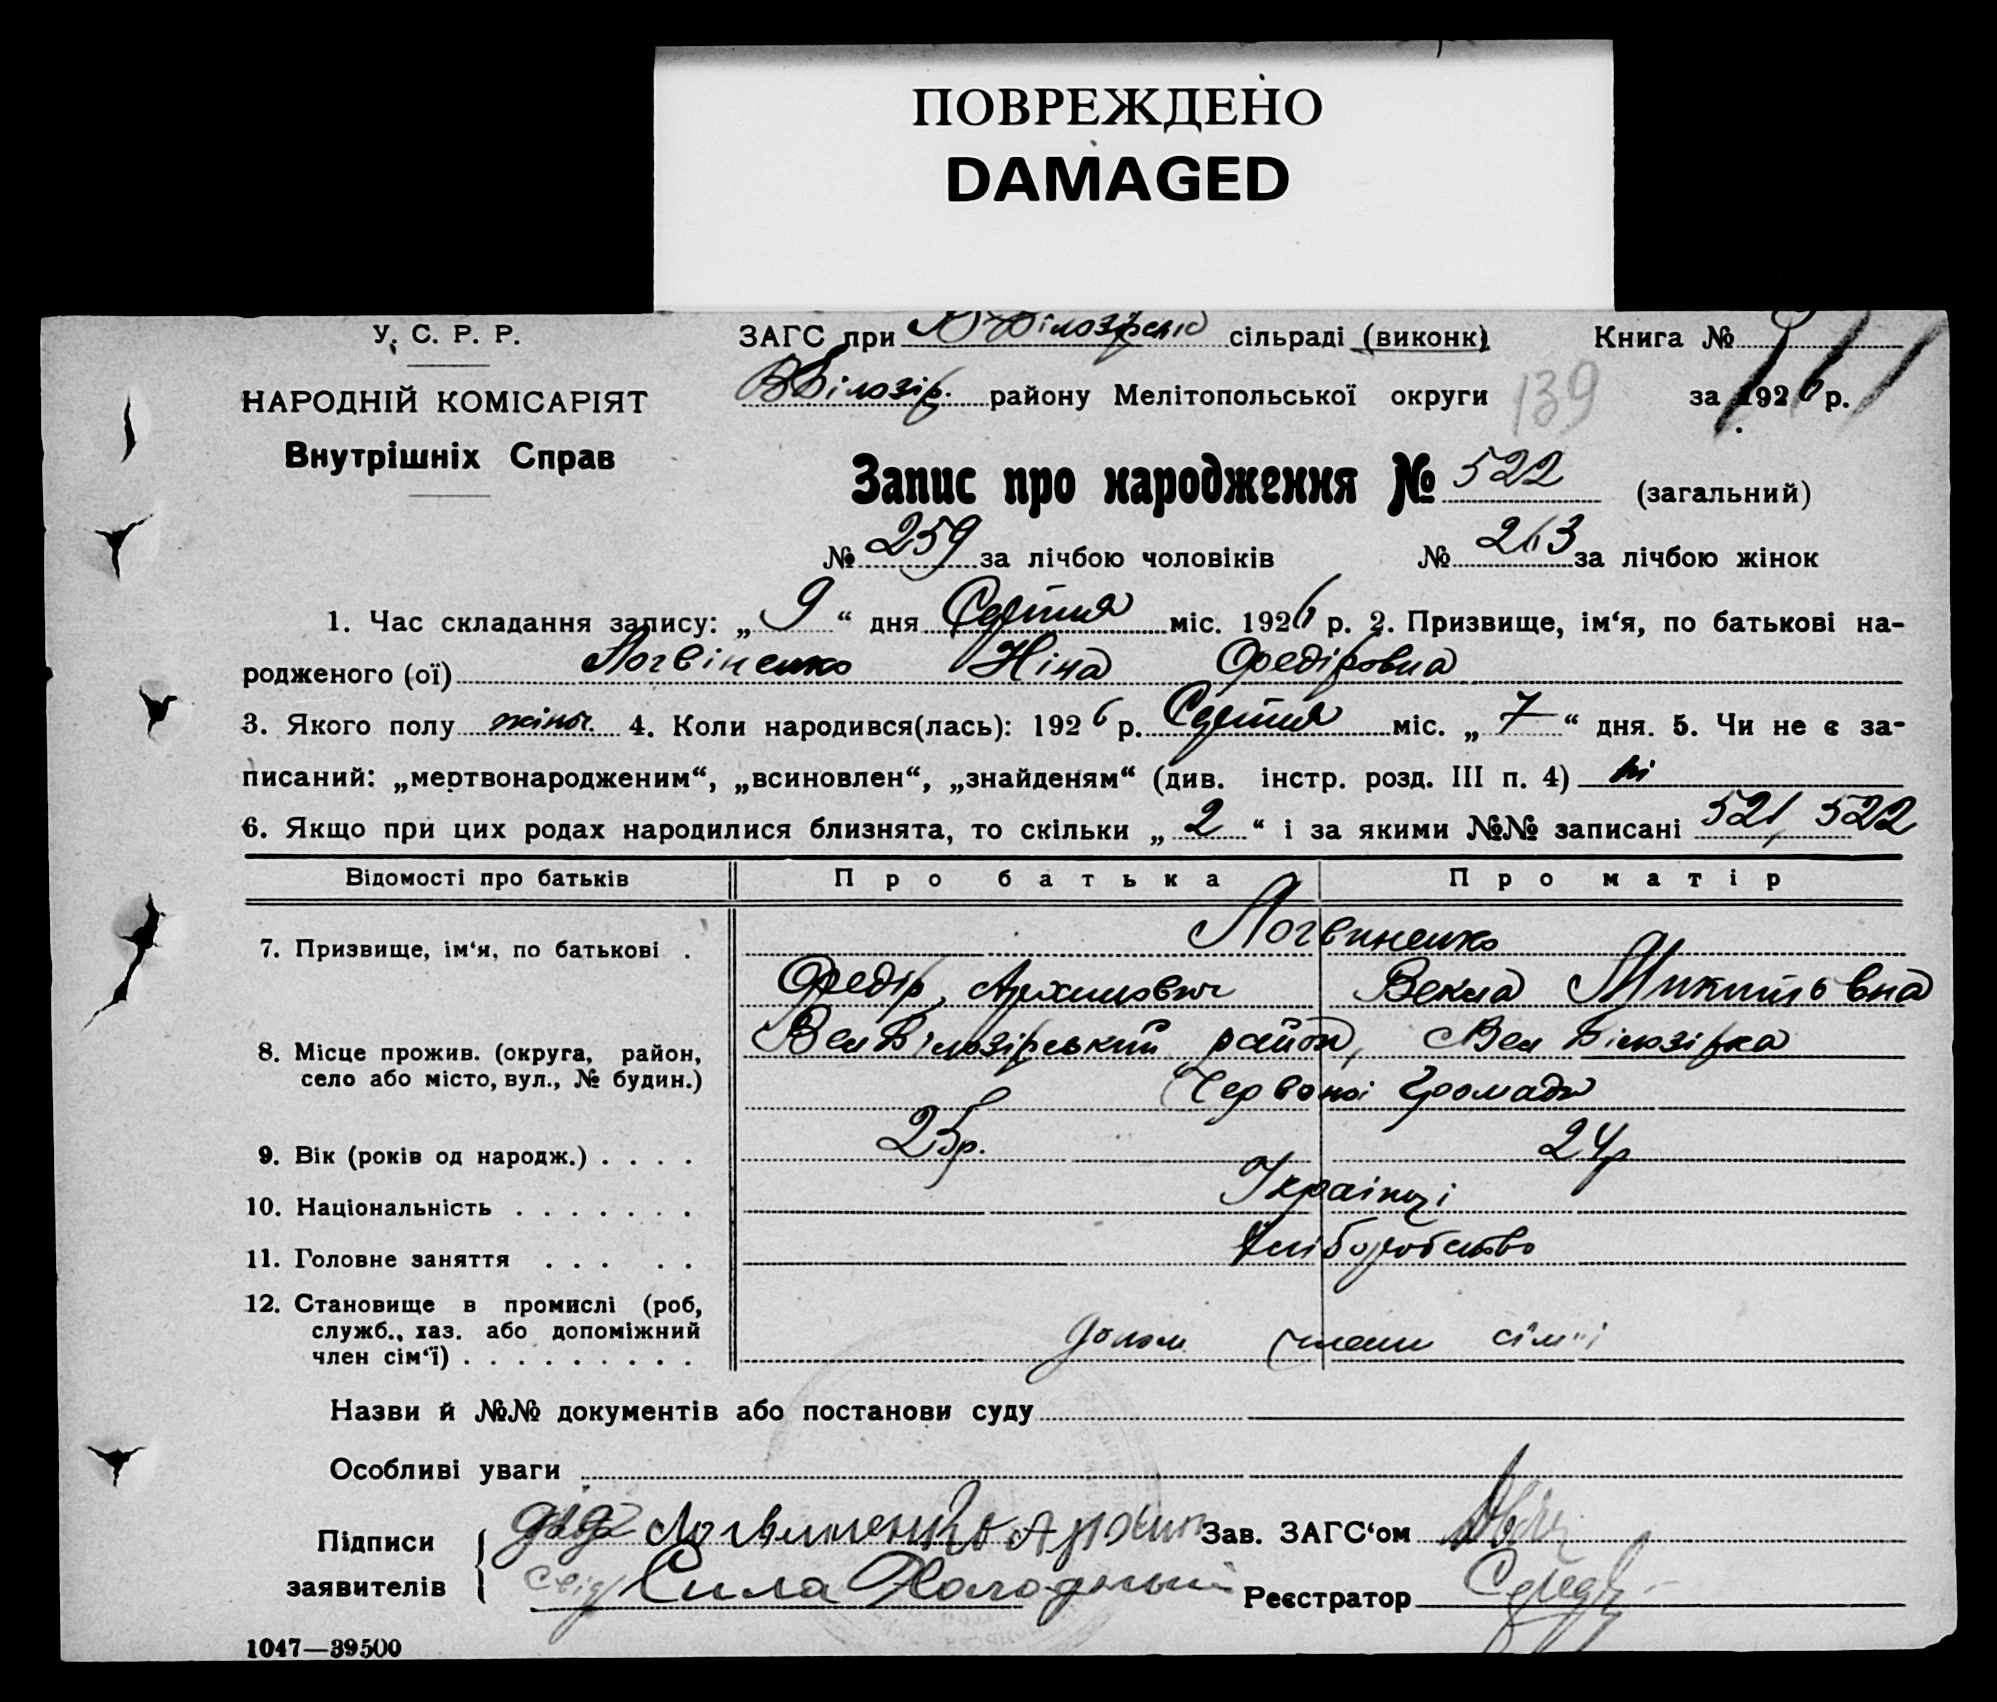 ПОВРЕЖДЕНО
DAMAGED
У. С. Р. Р.
НАРОДНІЙ КОМІСАРІЯТ
Внутрішніх Справ
ЗАГС при В-Білозірські сільраді (виконк)
Книга №
ВБілозір. району Мелітопольської округи
139
за 1926 р.
Запис про народження № 522 (загальний)
№ 259 за лічбою чоловіків № 263 за лічбою жінок
1. Час складання запису: „ 9 “ дня Серпня міс. 1926 р. 2. Призвище, ім‘я, по батькові на-
родженого (ої) Логвіненко Ніна Федіровна
3. Якого полу жіноч. 4. Коли народився(лась): 1926 р. Серпня міс. „ 7 “ дня. 5. Чи не є за-
писаний: „мертвонародженим“, „всиновлен“, „знайденям“ (див. інстр. розд. III п. 4) ні
6. Якщо при цих родах народилися близнята, то скільки „ 2 “ і за якими №№ записані 521, 522
Відомості про батьків Про батька Про матір
7. Призвище, ім‘я, по батькові . Логвиненко
Федір Архипович Векла Микитовна
8. Місце прожив. (округа, район, село або місто, вул., № будин.) Вел Білозірський район, Вел Білозірка
Червоної Громади
9. Вік (років од народж.) . . . . 25р. 24р
10. Національність . . . . . . . Українці
11. Головне заняття . . . . . Хліборобство
12. Становище в промислі (роб,
служб., хаз. або допоміжний
член сім‘ї) . . . . . . . . . допом члени сім'ї
Назви й №№ документів або постанови суду
Особливі уваги
Підписи
заявителів
дід Логвиненко Архип
Зав. ЗАГС‘ом
свід Сила
Реєстратор
1047—39500